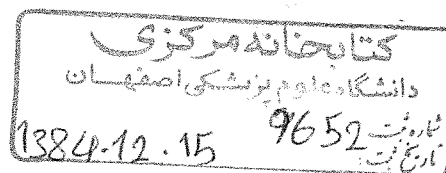 کتابخانه مرکزی
دانشگاه علوم پزشکی اصفهان
شماره ثبت 9652
تاریخ ثبت: 1384.12.15